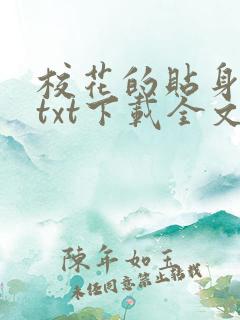 校花的貼身
txt下載全文
陳年如玉
未經同意禁止轉載